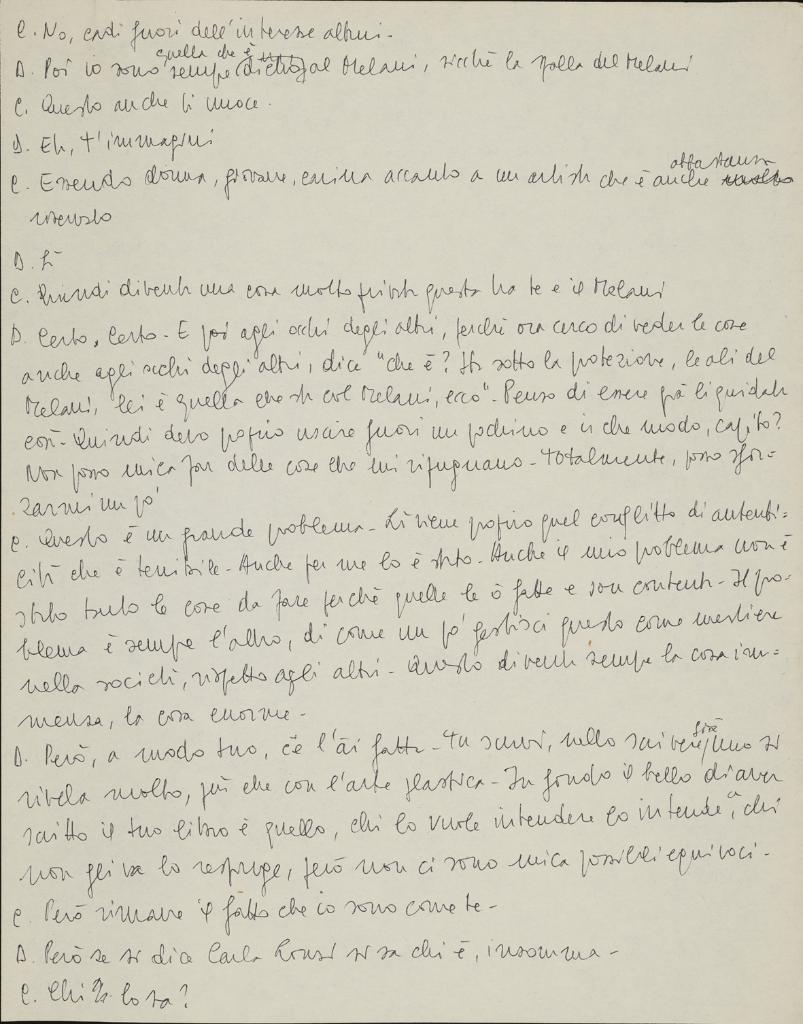 C. No, cadi fuori dell'interesse altrui-
D. Poi io sono sempre quella che è dietro al Melani, sicché la spalla del Melani
C. Questo anche ti nuoce.
D. Eh, t'immagini
C. Essendo donna, giovane, carina accanto a un artista che è anche abbastanza
vissuto
D. Sì
C. Quindi diventa una cosa molto privata questa tra te e il Melani
D. Certo, certo- E poi agli occhi degli altri, perché ora cerco di veder le cose
anche agli occhi degli altri, dice "che è? Sta sotto la protezione, le ali del
Melani, lei è quella che sta col Melani, ecco"- Penso di essere già liquidata
così- Quindi devo proprio uscire fuori un pochino e in che modo, capito?
Non posso mica far delle cose che mi ripugnano- Totalmente, posso sfor=
zarmi un po'
C. Questo è un grande problema- Lì viene proprio quel conflitto di autenti=
cità che è terribile- Anche per me lo è stato- Anche il mio problema non è
stato tanto le cose da fare perché quelle le ò fatte e son contenta- Il pro=
blema è sempre l'altro, di come un po' gestisci questo come mestiere
nella società, rispetto agli altri- Questo diventa sempre la cosa im=
mensa, la cosa enorme-
D. Però, a modo tuo, ce l'ài fatta- Tu scrivi, nello scrivere già uno si
rivela molto, più che con l'arte plastica- In fondo il bello di aver
scritto il tuo libro è quello, chi lo vuole intendere lo intende, a chi
non gli va lo respinge, però non ci sono mica possibili equivoci-
C. Però rimane il fatto che io sono come te-
D. Però se si dice Carla Lonzi si sa chi è, insomma-
C. Chi lo sa?